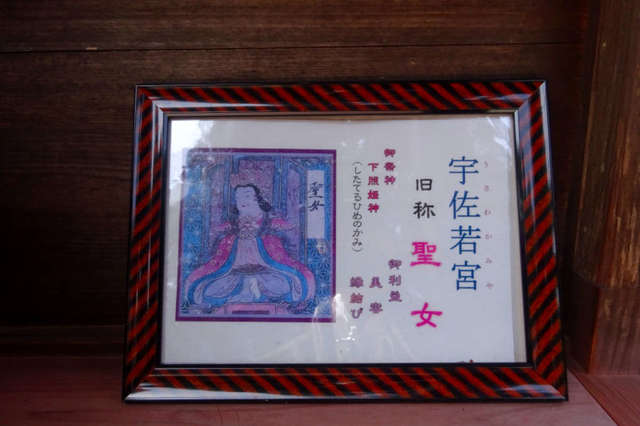 うさわかみや
宇佐若宮
旧称 聖女
御祭神
下照姫神
(したてるひめのかみ)
御利益
美容
縁結び
聖女